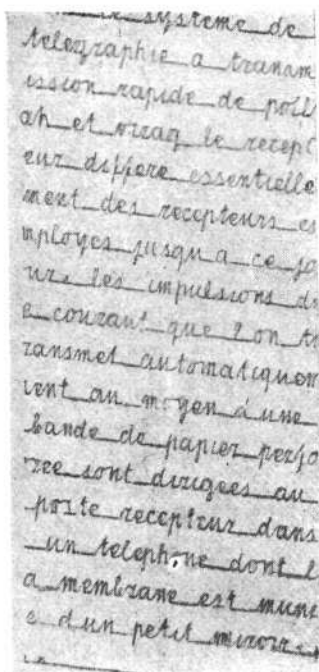 le systeme de
telegraphie a transm
ission rapide de poll
ak et virag le recept
eur differe essentielle
ment des recepteurs es
mployes jusqu a ce jo
ur les impulsions d
e courant que l on t
ransmet automatiquem
ent au moyen d une
bande de papier perfo
ree sont dirigees au
poste recepteur dans
un telephone dont l
a membrane est muni
e d un petit miroir